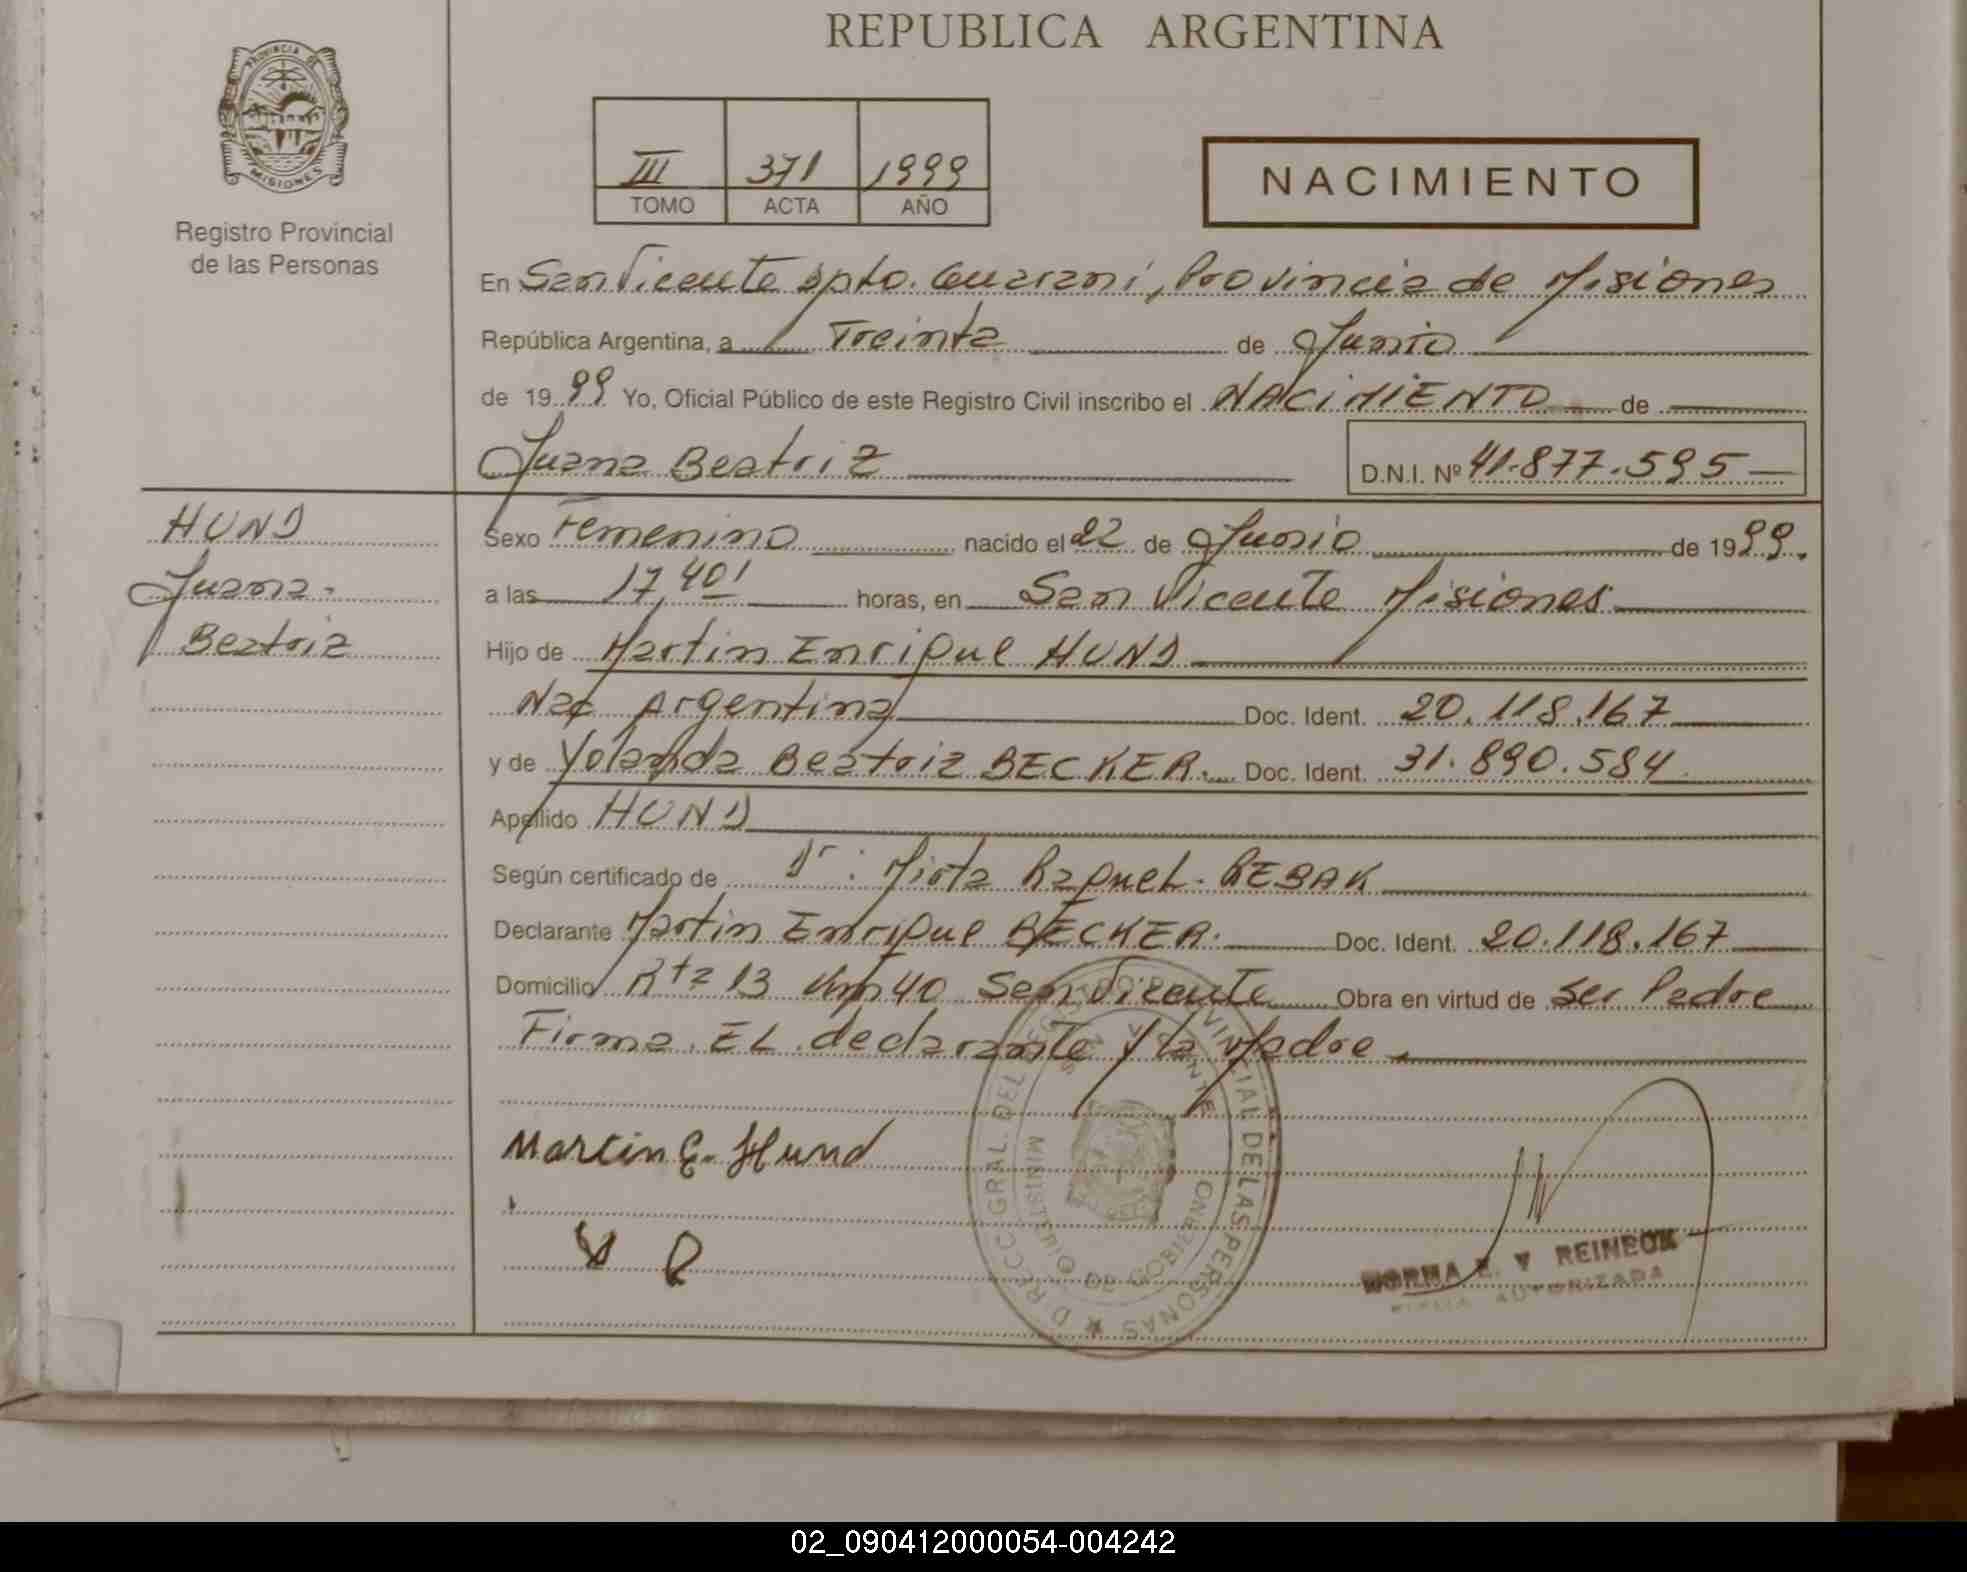 REPUBLICA ARGENTINA
PROVINCIA DE
MISIONES
Registro Provincial
de las Personas
III 371 1999
TOMO ACTA AÑO
NACIMIENTO
En San Vicente Dpto. Guarani, Provincia de Misiones
República Argentina, a Treinta de Junio
de 1999 Yo, Oficial Público de este Registro Civil inscribo el NACIMIENTO de
Juana Beatriz D.N.I. Nº 41.877.595
HUND
Juana
Beatriz
Sexo Femenino nacido el 22 de Junio de 1999.
a las 17,40' horas, en San Vicente Misiones
Hijo de Martin Enrique HUND
Nac Argentina Doc. Ident. 20.118.167
y de Yolanda Beatriz BECKER. Doc. Ident. 31.890.584
Apellido HUND
Según certificado de Dr: Mirta Raquel
Declarante Martin Enrique BECKER. Doc. Ident. 20.118.167
Domicilio Rta 13 Km 40 San Vicente Obra en virtud de Ser Padre
Firma EL declarante y la Madre
Martin E. Hund
DIRECC. GRAL. DEL REGISTRO PROVINCIAL DE LAS PERSONAS
SAN VICENTE
MINISTERIO DE GOBIERNO
NORMA E. V REINECK
FIRMA AUTORIZADA
02_090412000054-004242